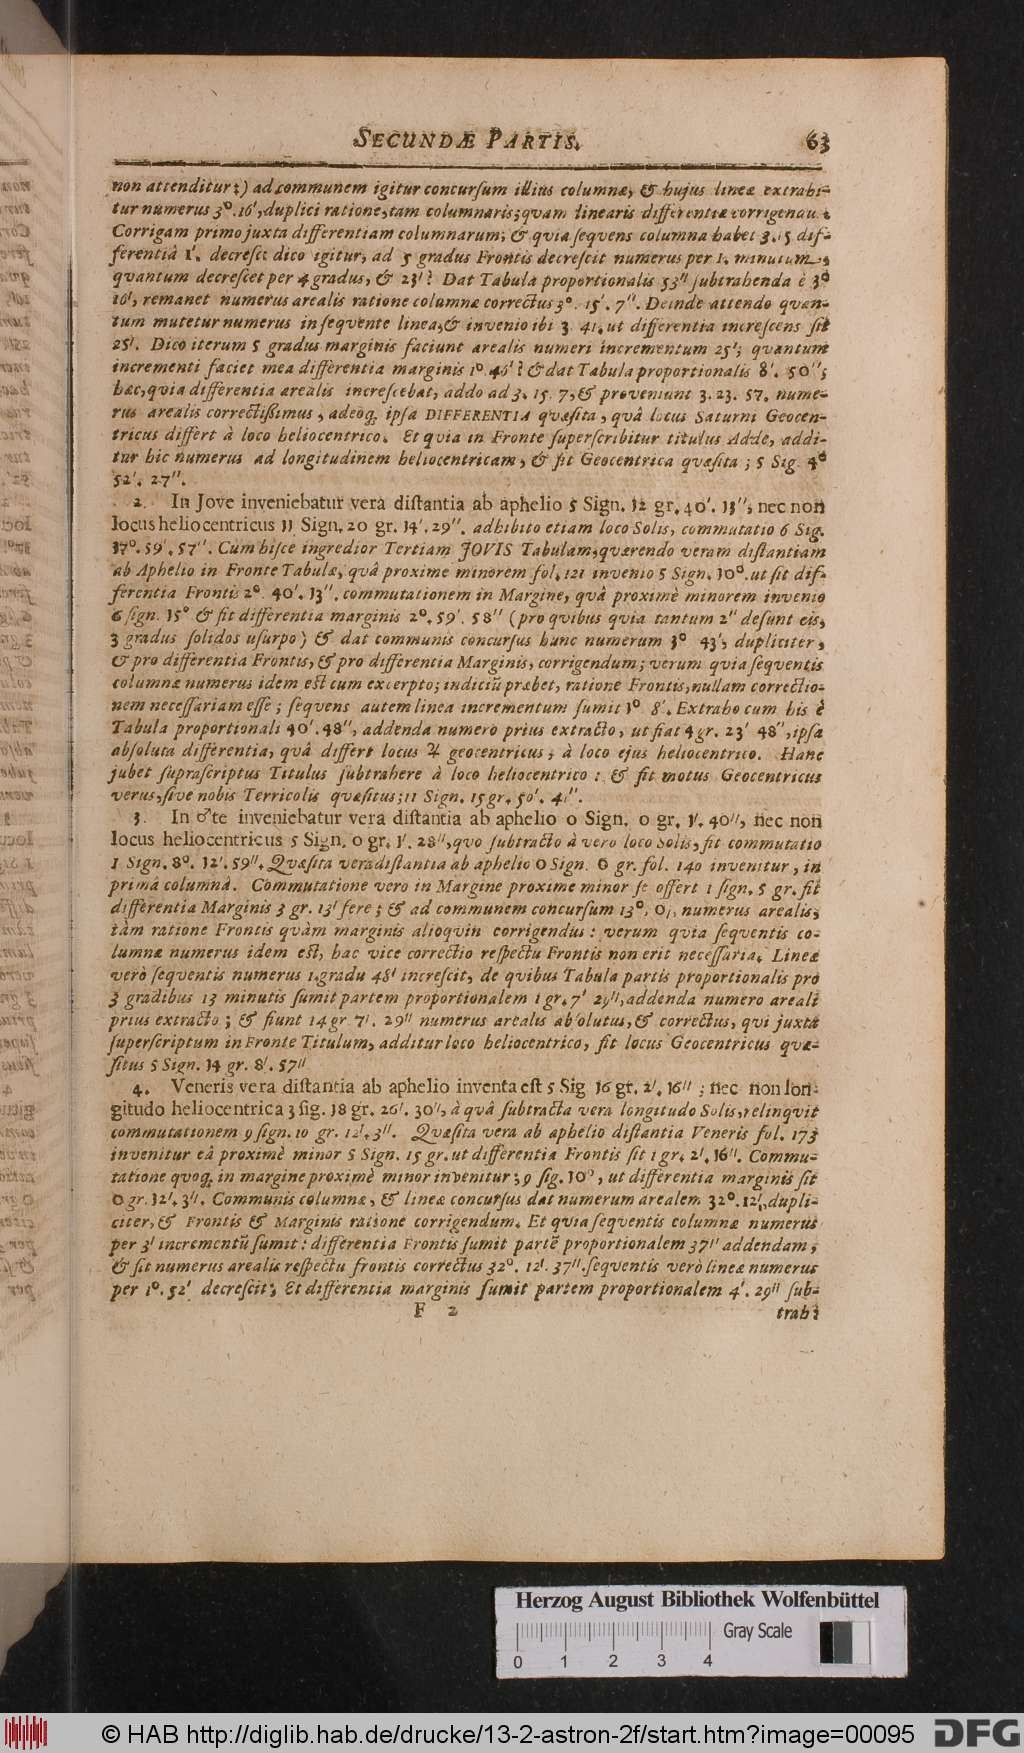 SECUNDÆ PARTIS. 63
non attenditur;) ad communem igitur concurſum illius columnæ, & hujus lineæ extrahi-
tur numerus 3°. 16', duplici ratione, tam columnaris; quam linearis differentiæ corrigendus.
Corrigam primo juxta differentiam columnarum; & quia ſequens columna habet 3. 15 dif-
ferentiâ 1'. decreſcit dico igitur, ad 5 gradus Frontis decreſcit numerus per 1. minutum,
quantum decreſcet per 4 gradus, & 23'? Dat Tabula proportionalis 53'' ſubtrahenda è 3°
16', remanet numerus arealis ratione columnæ correctus 3°. 15'. 7''. Deinde attendo quan-
tum mutetur numerus in ſequente linea, & invenio ibi 3. 41. ut differentia increſcens ſit
25'. Dico iterum 5 gradus marginis faciunt arealis numeri incrementum 25'; quantum
incrementi faciet mea differentia marginis 1°. 46'? & dat Tabula proportionalis 8'. 50'';
hæc, quia differentia arealis increſcebat, addo ad 3. 15. 7, & proveniunt 3. 23. 57. nume-
rus arealis correctiſſimus, adeoq; ipſa DIFFERENTIA quæſita, quâ locus Saturni Geocen-
tricus differt à loco heliocentrico. Et quia in Fronte ſuperſcribitur titulus Adde, addi-
tur hic numerus ad longitudinem heliocentricam, & fit Geocentrica quæſita; 5 Sig. 4°
52'. 27''.
2. In Jove inveniebatur vera diſtantia ab aphelio 5 Sign. 12 gr. 40'. 13'', nec non
locus heliocentricus 11 Sign. 20 gr. 14'. 29''. adhibito etiam loco Solis, commutatio 6 Sig.
17°. 59'. 57''. Cum hiſce ingredior Tertiam JOVIS Tabulam, quærendo veram diſtantiam
ab Aphelio in Fronte Tabulæ, quâ proxime minorem fol. 121 invenio 5 Sign. 10°. ut ſit dif-
ferentia Frontis 2°. 40'. 13''. commutationem in Margine, quâ proximè minorem invenio
6 ſign. 15° & fit differentia marginis 2°. 59'. 58'' (pro quibus quia tantum 2'' deſunt eis,
3 gradus ſolidos uſurpo) & dat communis concurſus hunc numerum 3° 43', dupliciter,
& pro differentia Frontis, & pro differentia Marginis, corrigendum; verum quia ſequentis
columnæ numerus idem eſt cum excerpto; indiciũ præbet, ratione Frontis, nullam correctio-
nem neceſſariam eſſe; ſequens autem linea incrementum ſumit 1°. 8'. Extraho cum his è
Tabula proportionali 40'. 48'', addenda numero prius extracto, ut fiat 4 gr. 23' 48'', ipſa
abſoluta differentia, quâ differt locus ♃ geocentricus, à loco ejus heliocentrico. Hanc
jubet ſupraſcriptus Titulus ſubtrahere à loco heliocentrico: & fit motus Geocentricus
verus, ſive nobis Terricolis quæſitus; 11 Sign. 15 gr. 50'. 41''.
3. In ♂te inveniebatur vera diſtantia ab aphelio 0 Sign. 0 gr. 1'. 40'', nec non
locus heliocentricus 5 Sign. 0 gr. 1'. 28'', quo ſubtracto à vero loco Solis, fit commutatio
1 Sign. 8°. 12'. 59''. Quæſita vera diſtantia ab aphelio 0 Sign. 0 gr. fol. 140 invenitur, in
primâ columnâ. Commutatione vero in Margine proxime minor ſe offert 1 ſign. 5 gr. fit
differentia Marginis 3 gr. 13' fere; & ad communem concurſum 13°. 0', numerus arealis,
tàm ratione Frontis quàm marginis alioquin corrigendus: verum quia ſequentis co-
lumnæ numerus idem eſt, hac vice correctio reſpectu Frontis non erit neceſſaria. Lineæ
verò ſequentis numerus 1. gradu 48' increſcit, de quibus Tabula partis proportionalis pro
3 gradibus 13 minutis ſumit partem proportionalem 1 gr. 7' 29'', addenda numero areali
prius extracto; & fiunt 14 gr. 7'. 29'' numerus arealis abſolutus, & correctus, qui juxta
ſuperſcriptum in Fronte Titulum, additur loco heliocentrico, fit locus Geocentricus quæ-
ſitus 5 Sign. 14 gr. 8'. 57''
4. Veneris vera diſtantia ab aphelio inventa eſt 5 Sig. 16 gr. 2'. 16''; nec non lon-
gitudo heliocentrica 3 ſig. 18 gr. 26'. 30'', à quâ ſubtracta vera longitudo Solis, relinquit
commutationem 9 ſign. 10 gr. 12'. 3''. Quæſita vera ab aphelio diſtantia Veneris fol. 173
invenitur eâ proximè minor 5 Sign. 15 gr. ut differentia Frontis ſit 1 gr. 2'. 16''. Commu-
tatione quoq; in margine proximè minor invenitur; 9 ſig. 10°, ut differentia marginis ſit
0 gr. 12'. 3''. Communis columnæ, & lineæ concurſus dat numerum arealem 32°. 12', dupli-
citer, & Frontis & Marginis ratione corrigendum. Et quia ſequentis columnæ numerus
per 3' incrementũ ſumit: differentia Frontis ſumit partẽ proportionalem 37'' addendam,
& fit numerus arealis reſpectu frontis correctus 32°. 12'. 37''. ſequentis verò lineæ numerus
per 1°. 52' decreſcit; Et differentia marginis ſumit partem proportionalem 4'. 29'' ſub-
F 2 trahi
Herzog August Bibliothek Wolfenbüttel
Gray Scale
0 1 2 3 4
© HAB http://diglib.hab.de/drucke/13-2-astron-2f/start.htm?image=00095 DFG